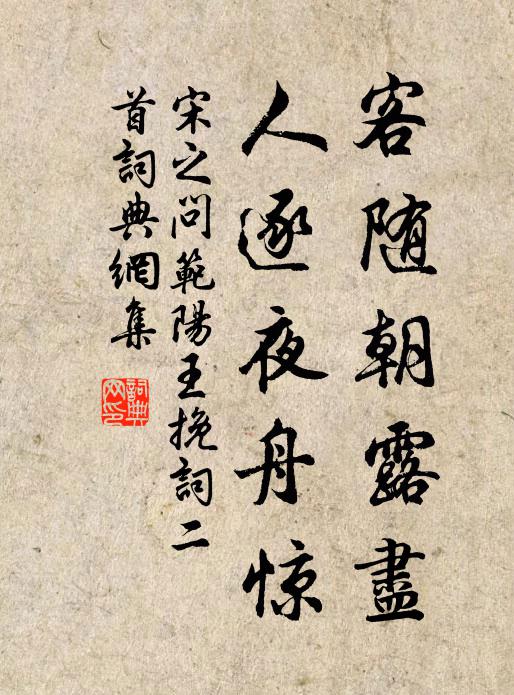 客随朝露盡
人逐夜舟惊
宋之问範陽王挽詞二
首詞典網集
詞典
网印